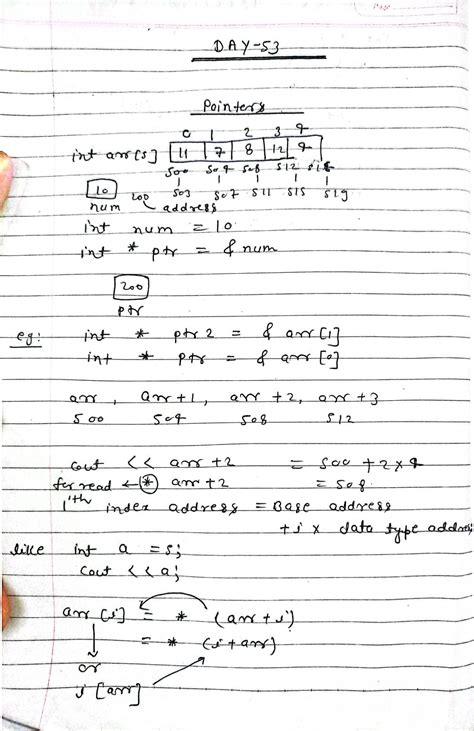 Page
DAY-53
Pointers
0 1 2 3 4
int arr[5] 11 7 8 12 9
500 504 508 512 516
10 200 503 507 511 515 519
num address
int num = 10
int * ptr = & num
200
ptr
eg: int * ptr2 = & arr[1]
int * ptr = & arr[0]
arr , arr+1, arr+2, arr+3
500 504 508 512
cout << arr+2 = 500+2×4
for read ← * arr+2 = 508
i'th index address = Base address
+ i × data type address
like int a = 5;
cout << a;
arr[i] = * (arr+i)
= * (i+arr)
or
i[arr]